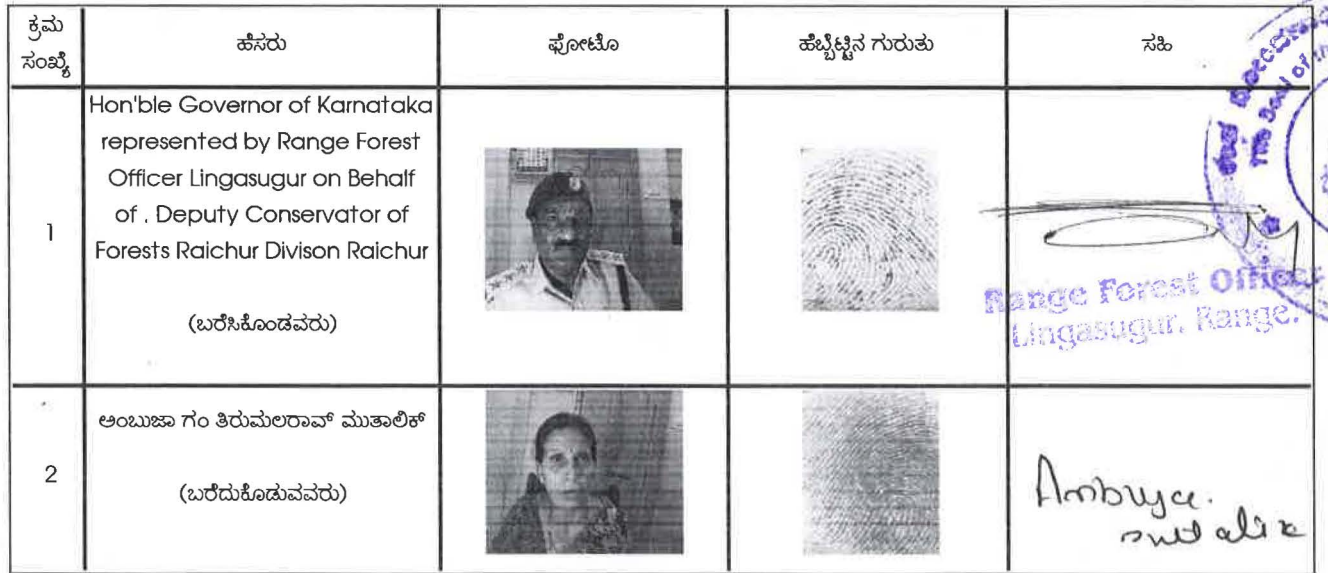 ಕ್ರಮ
ಸಂಖ್ಯೆ
ಹೆಸರು
ಫೋಟೊ
ಹೆಬ್ಬೆಟ್ಟಿನ ಗುರುತು
ಸಹಿ
1
Hon'ble Governor of Karnataka
represented by Range Forest
Officer Lingasugur on Behalf
of . Deputy Conservator of
Forests Raichur Divison Raichur
(ಬರೆಸಿಕೊಂಡವರು)
Range Forest Officer
Lingasugur, Range.
2
ಅಂಬುಜಾ ಗಂ ತಿರುಮಲರಾವ್ ಮುತಾಲಿಕ್
(ಬರೆದುಕೊಡುವವರು)
Ambuja.
mutalik